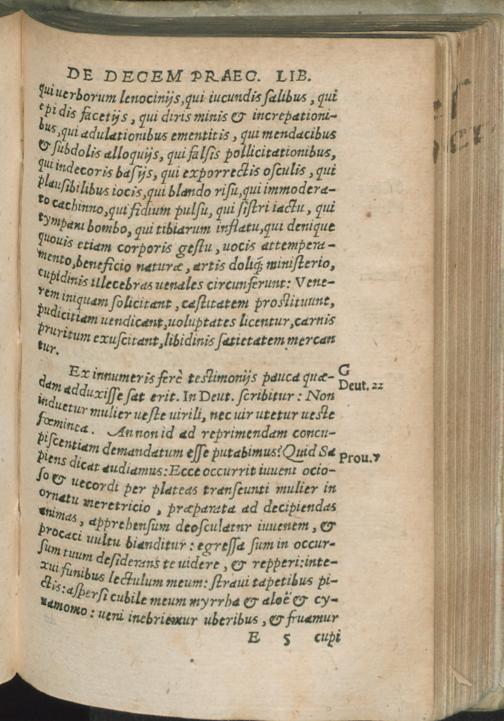 DE DECEM PRAEC. LIB.
qui uerborum lenocinijs,qui iucundis salibus, qui
epidis facetijs, qui diris minis & increpationi-
bus,qui adulationibus ementitis, qui mendacibus
& subdolis alloquijs, qui falsis pollicitationibus,
qui indecoris basijs, qui exporrectis osculis, qui
plausibilibus iocis,qui blando risu,qui immodera-
to cachinno,qui fidium pulsu, qui sistri iactu, qui
tympani bombo, qui tibiarum inflatu,qui denique
quouis etiam corporis gestu, uocis attempera-
mento,beneficio naturæ, artis doliq́; ministerio,
cupidinis illecebras uenales circunferunt: Vene-
rem iniquam solicitant, castitatem prostituunt,
pudicitiam uendicant,uoluptates licentur,carnis
pruritum exuscitant,libidinis satietatem mercan
tur.
Ex innumeris ferè testimonijs pauca quæ-
G
dam adduxisse sat erit. In Deut. scribitur: Non
Deut. 22
induetur mulier ueste uirili, nec uir utetur ueste
fœminea. Annon id ad reprimendam concu-
piscentiam demandatum esse putabimus? Quid Sa
piens dicat audiamus: Ecce occurrit iuueni ocio-
Prou.7
so & uecordi per plateas transeunti mulier in
ornatu meretricio, præparata ad decipiendas
animas, apprehensum deosculatur iuuenem, &
procaci uultu blanditur: egressa sum in occur-
sum tuum desiderans te uidere, & repperi:inte-
xui funibus lectulum meum: straui tapetibus pi-
ctis:aspersi cubile meum myrrha & aloë & cy-
namomo: ueni inebriemur uberibus, & fruamur
E 5 cupi